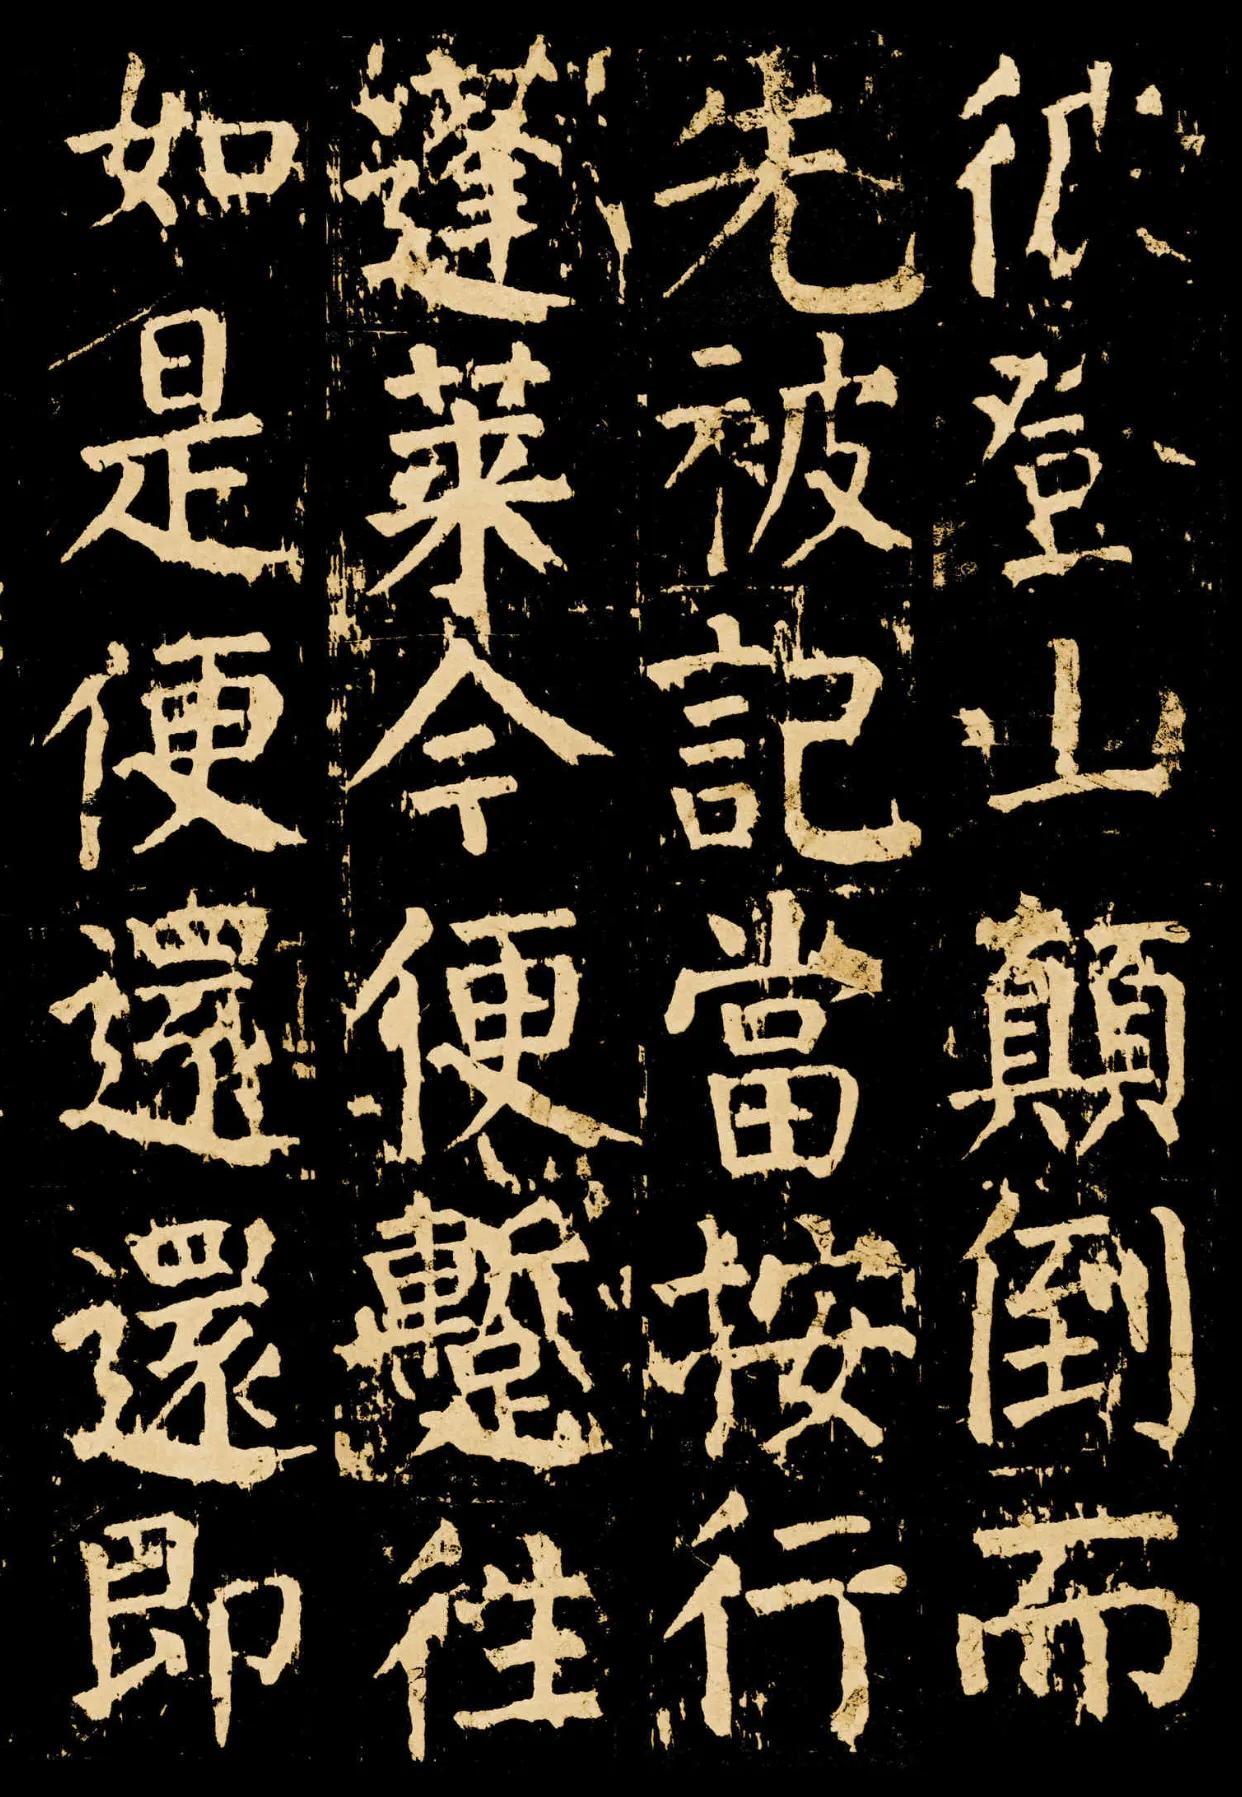 彼登山顛倒而
先被記當按行
蓬萊今便蹔往
如是便還還即